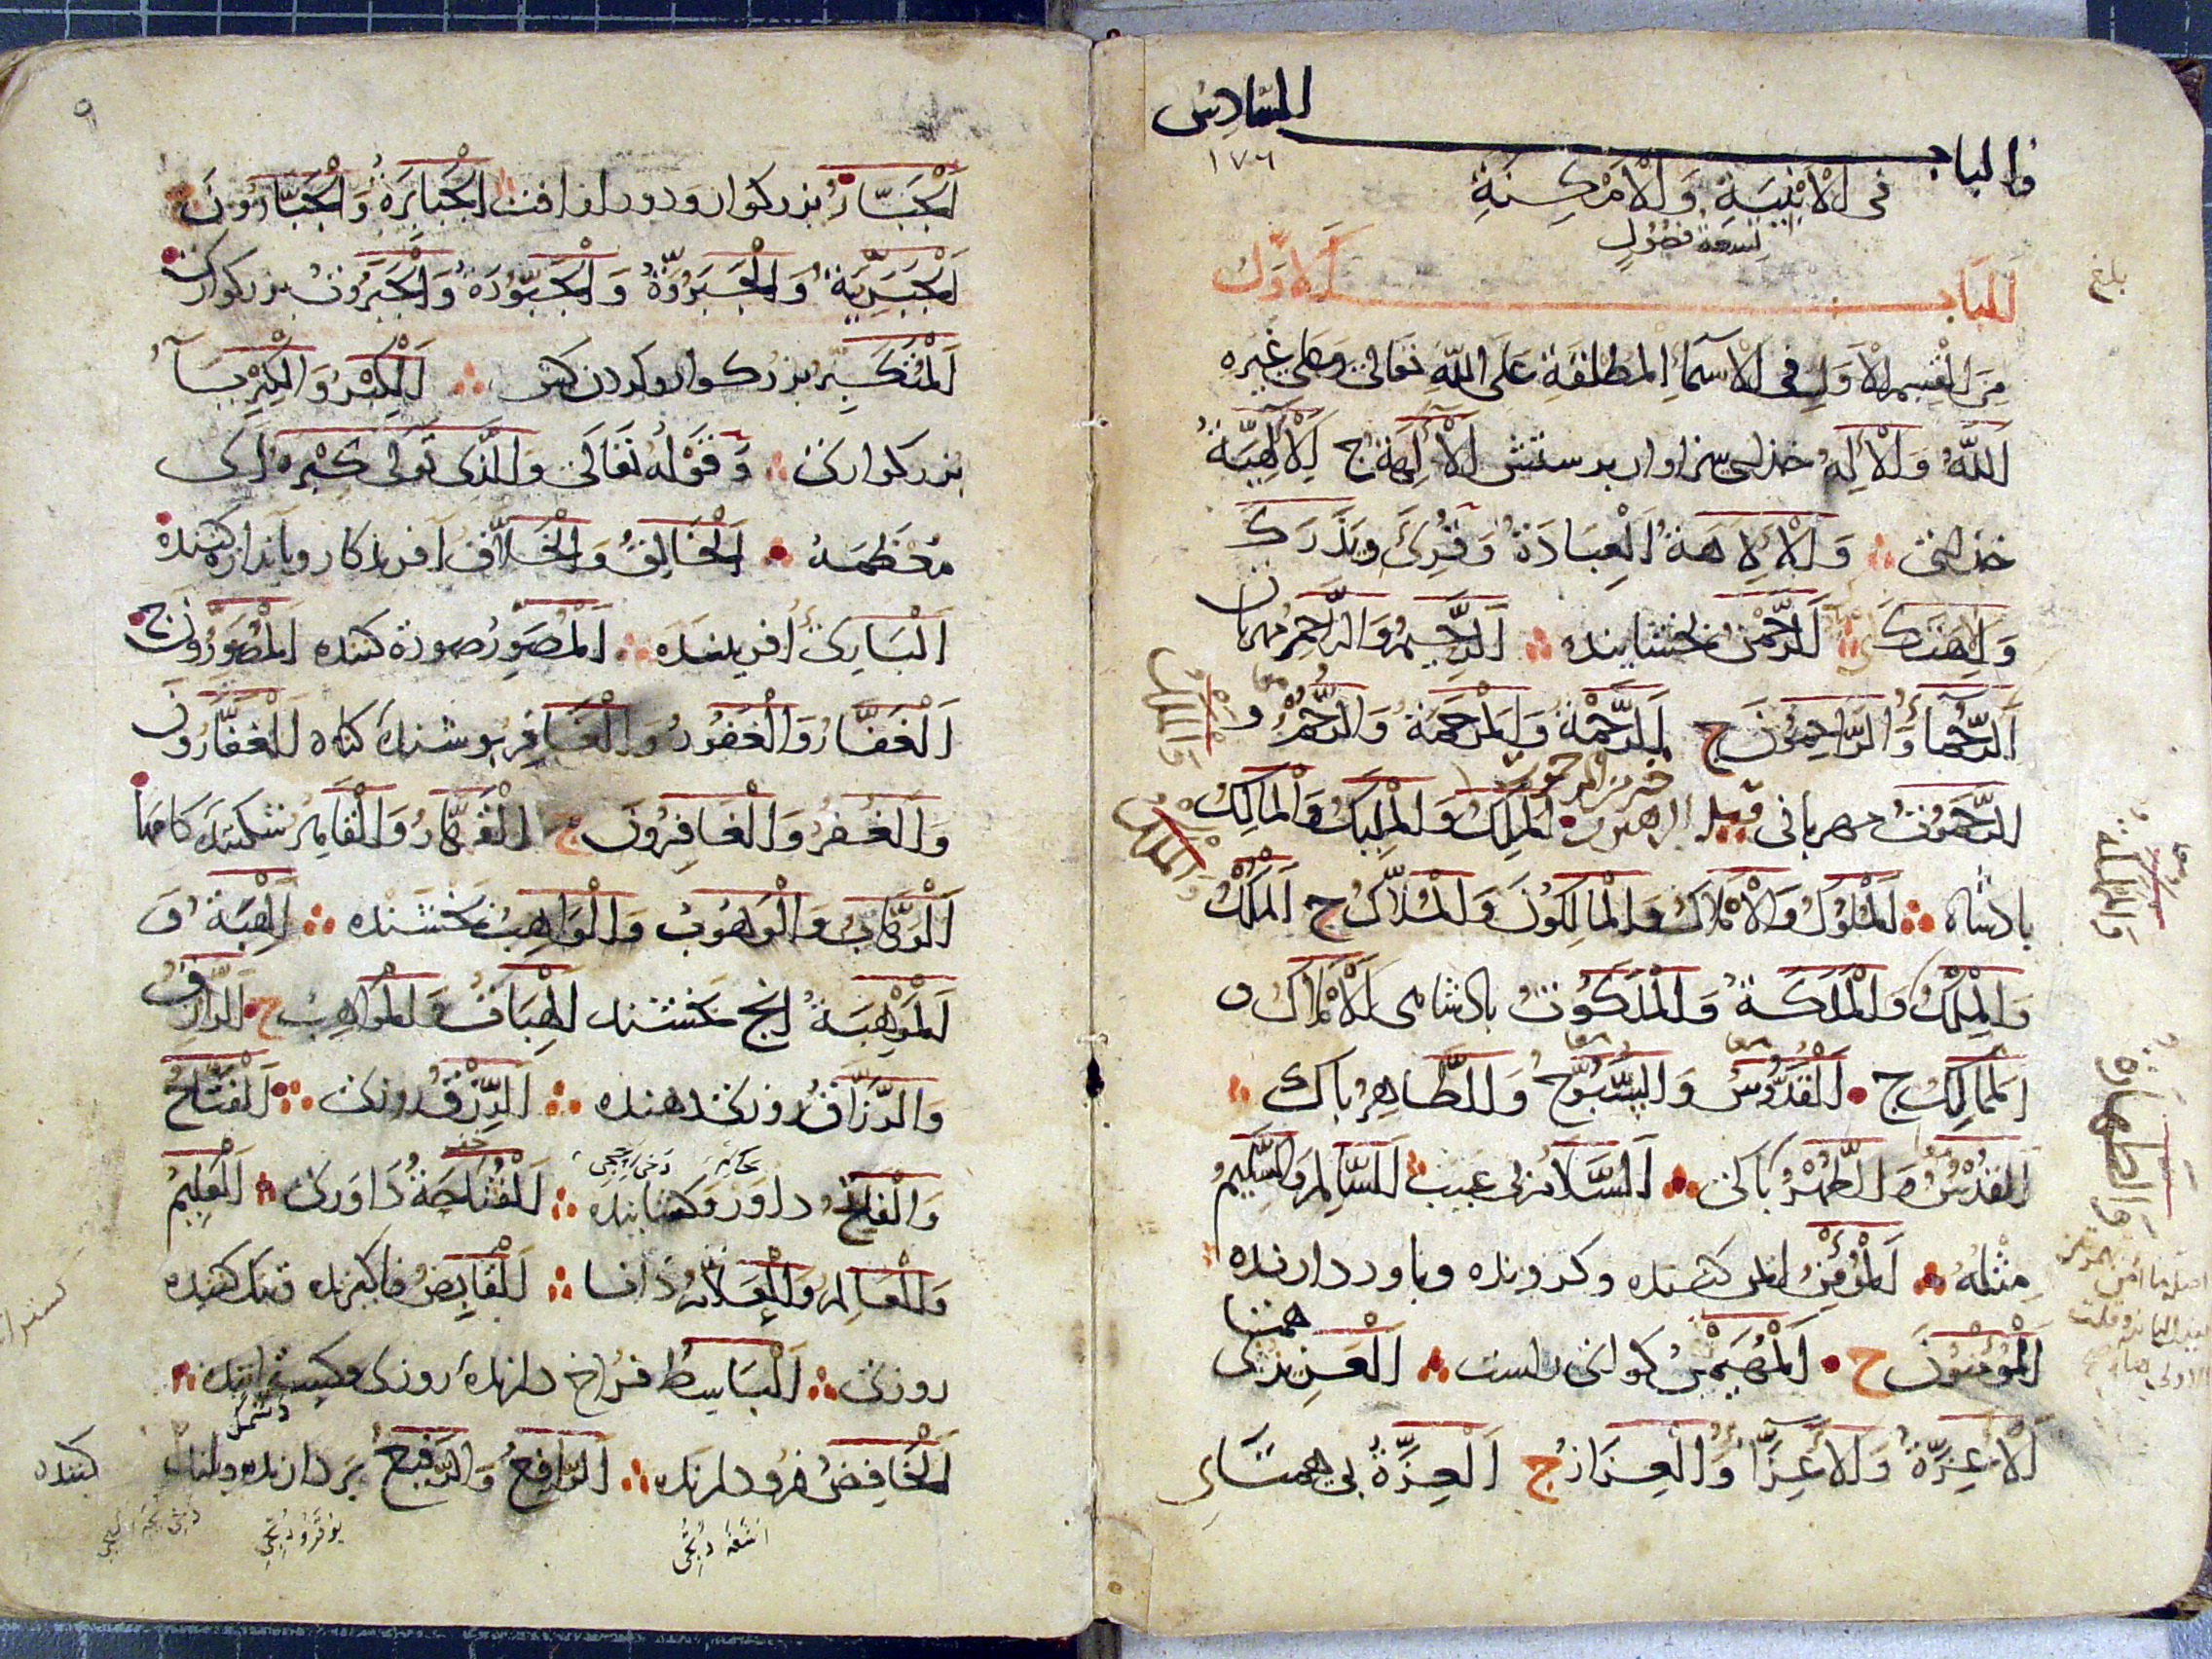 والباب السادس
١٧٦
فى الابنية والامكنة
تسعة فصول
الباب الاول
بلغ
من القسم الاول فى الاسماء المطلقة على الله تعالى وعلى غيره
اَللّٰهُ وَالْاِلٰهُ خداى سزاوار پرستش الْاٰلِهَةُ ج اَلْاِلٰهِيَّةُ
خدائى وَالْاِلَاهَةُ اَلْعِبَادَةُ وَقُرِئَ وَيَذَرَكَ
وَاِلٰهَتَكَ اَلرَّحْمٰنُ بخشاينده اَلرَّحِيمُ وَالرَّاحِمُ مهربان
اَلرُّحَمَاءُ وَالرَّاحِمُونَ ج اَلرَّحْمَةُ وَالْمَرْحَمَةُ وَالرُّحْمُ وَ
الرَّحَمُوتُ مهربانى قيل الرهبوت خير من الرحموت اَلْمَلِكُ وَالْمَلِيكُ وَالْمَالِكُ
پادشاه اَلْمُلُوكُ وَالْاَمْلَاكُ وَالْمَالِكُونَ وَالْمُلَّاكُ ج اَلْمُلْكُ
وَالْمِلْكُ وَالْمَلَكَةُ وَالْمَلَكُوتُ پادشاهى اَلْاَمْلَاكُ و
الْمَمَالِكُ ج اَلْقُدُّوسُ وَالسُّبُّوحُ وَالطَّاهِرُ پاك
اَلْقُدْسُ وَالطُّهْرُ پاكى اَلسَّلَامُ بى عيب اَلسَّالِمُ وَالسَّلِيمُ
وَالطَّهَارَةُ
مِثْلُهُ اَلْمُؤْمِنُ ايمن كننده وكرونده وباور دارنده
اَلْمُؤْمِنُونَ ج اَلْمُهَيْمِنُ كواى راست اَلْعَزِيزُ بى همتا
اَلْاَعِزَّةُ وَالْاَعِزَّاءُ وَالْعِزَازُ ج اَلْعِزَّةُ بى همتائى
٩
اَلْجَبَّارُ بزركوار ودور از افت اَلْجَبَابِرَةُ وَالْجَبَّارُونَ ج
اَلْجَبَرِيَّةُ وَالْجَبَرُوَّةُ وَالْجَبُّورَةُ وَالْجَبَرُوتُ بزركوارى
اَلْمُتَكَبِّرُ بزركوار وكردن كش اَلْكِبْرُ وَالْكِبْرِيَاءُ
بزركوارى وَقَوْلُهُ تَعَالَى وَالَّذِى تَوَلَّى كِبْرَهُ اَى
مُعْظَمَهُ اَلْخَالِقُ وَالْخَلَّاقُ آفريدكار وباندازه كننده
اَلْبَارِئُ آفريننده اَلْمُصَوِّرُ صورة كننده اَلْمُصَوِّرُونَ ج
اَلْغَفَّارُ وَالْغَفُورُ وَالْغَافِرُ پوشنده كناه اَلْغَفَّارُونَ
وَالْغُفُرُ وَالْغَافِرُونَ ج اَلْقَهَّارُ وَالْقَاهِرُ شكننده كامها
اَلْوَهَّابُ وَالْوَهُوبُ وَالْوَاهِبُ بخشنده اَلْهِبَةُ وَ
الْمَوْهِبَةُ انچ بخشند اَلْهِبَاتُ وَالْمَوَاهِبُ ج اَلرَّازِقُ
وَالرَّزَّاقُ روزى دهنده اَلرِّزْقُ روزى اَلْفَتَّاحُ
وَالْفَاتِحُ داور وكشاينده اَلْفُتَاحَةُ داورى اَلْعَلِيمُ
وَالْعَالِمُ وَالْعَلَّامُ دانا اَلْقَابِضُ فاكيرنده تنك كننده
روزى اَلْبَاسِطُ فراخ دارنده روزى وكستراننده
اَلْخَافِضُ فرودارنده اَلرَّافِعُ وَالرَّفِيعُ بردارنده وبلند
كننده